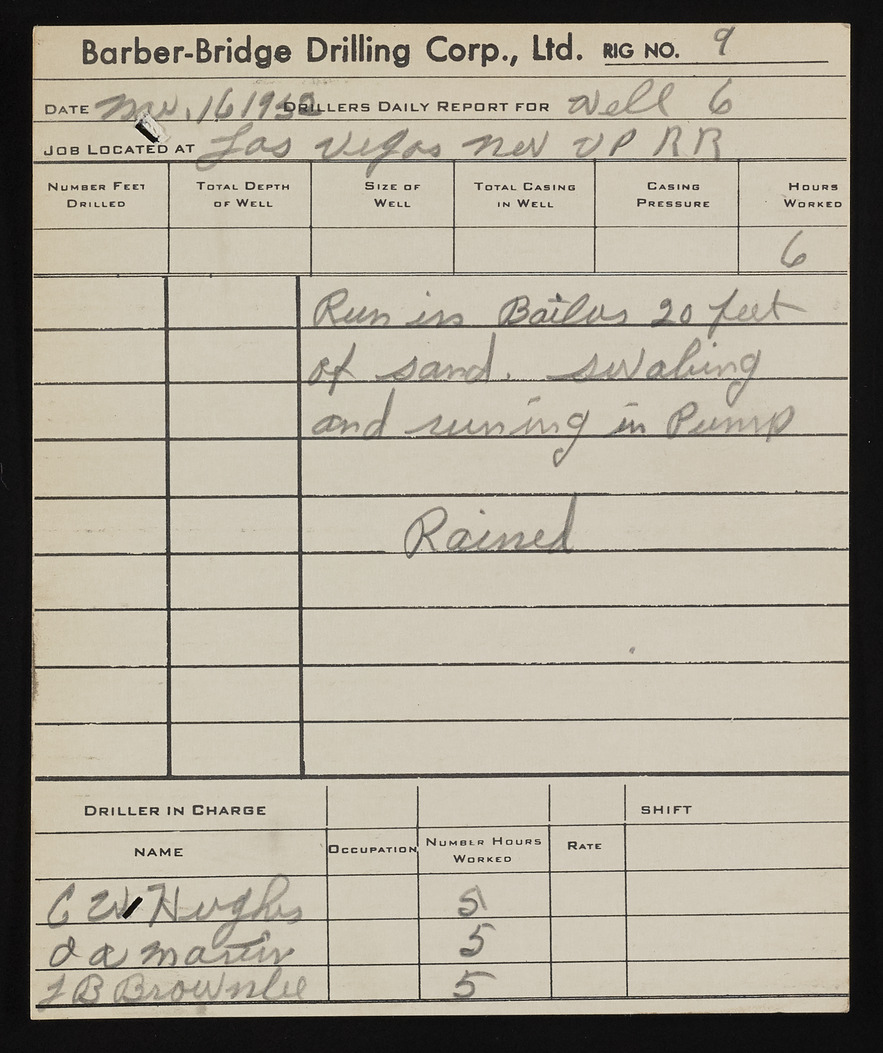 Barber-Bridge Drilling Corp., Ltd. RIG NO. 9
DATE Nov. 16 1952 DRILLERS DAILY REPORT FOR Well 6
JOB LOCATED AT Las Vegas Nev UP RR
NUMBER FEET DRILLED TOTAL DEPTH OF WELL SIZE OF WELL TOTAL CASING IN WELL CASING PRESSURE HOURS WORKED
6
Run in Bailus 20 feet
of sand. swabing
and runing in Pump
Rained
DRILLER IN CHARGE SHIFT
NAME OCCUPATION NUMBER HOURS WORKED RATE
C W Hughs 5
Martin 5
B Brownlee 5